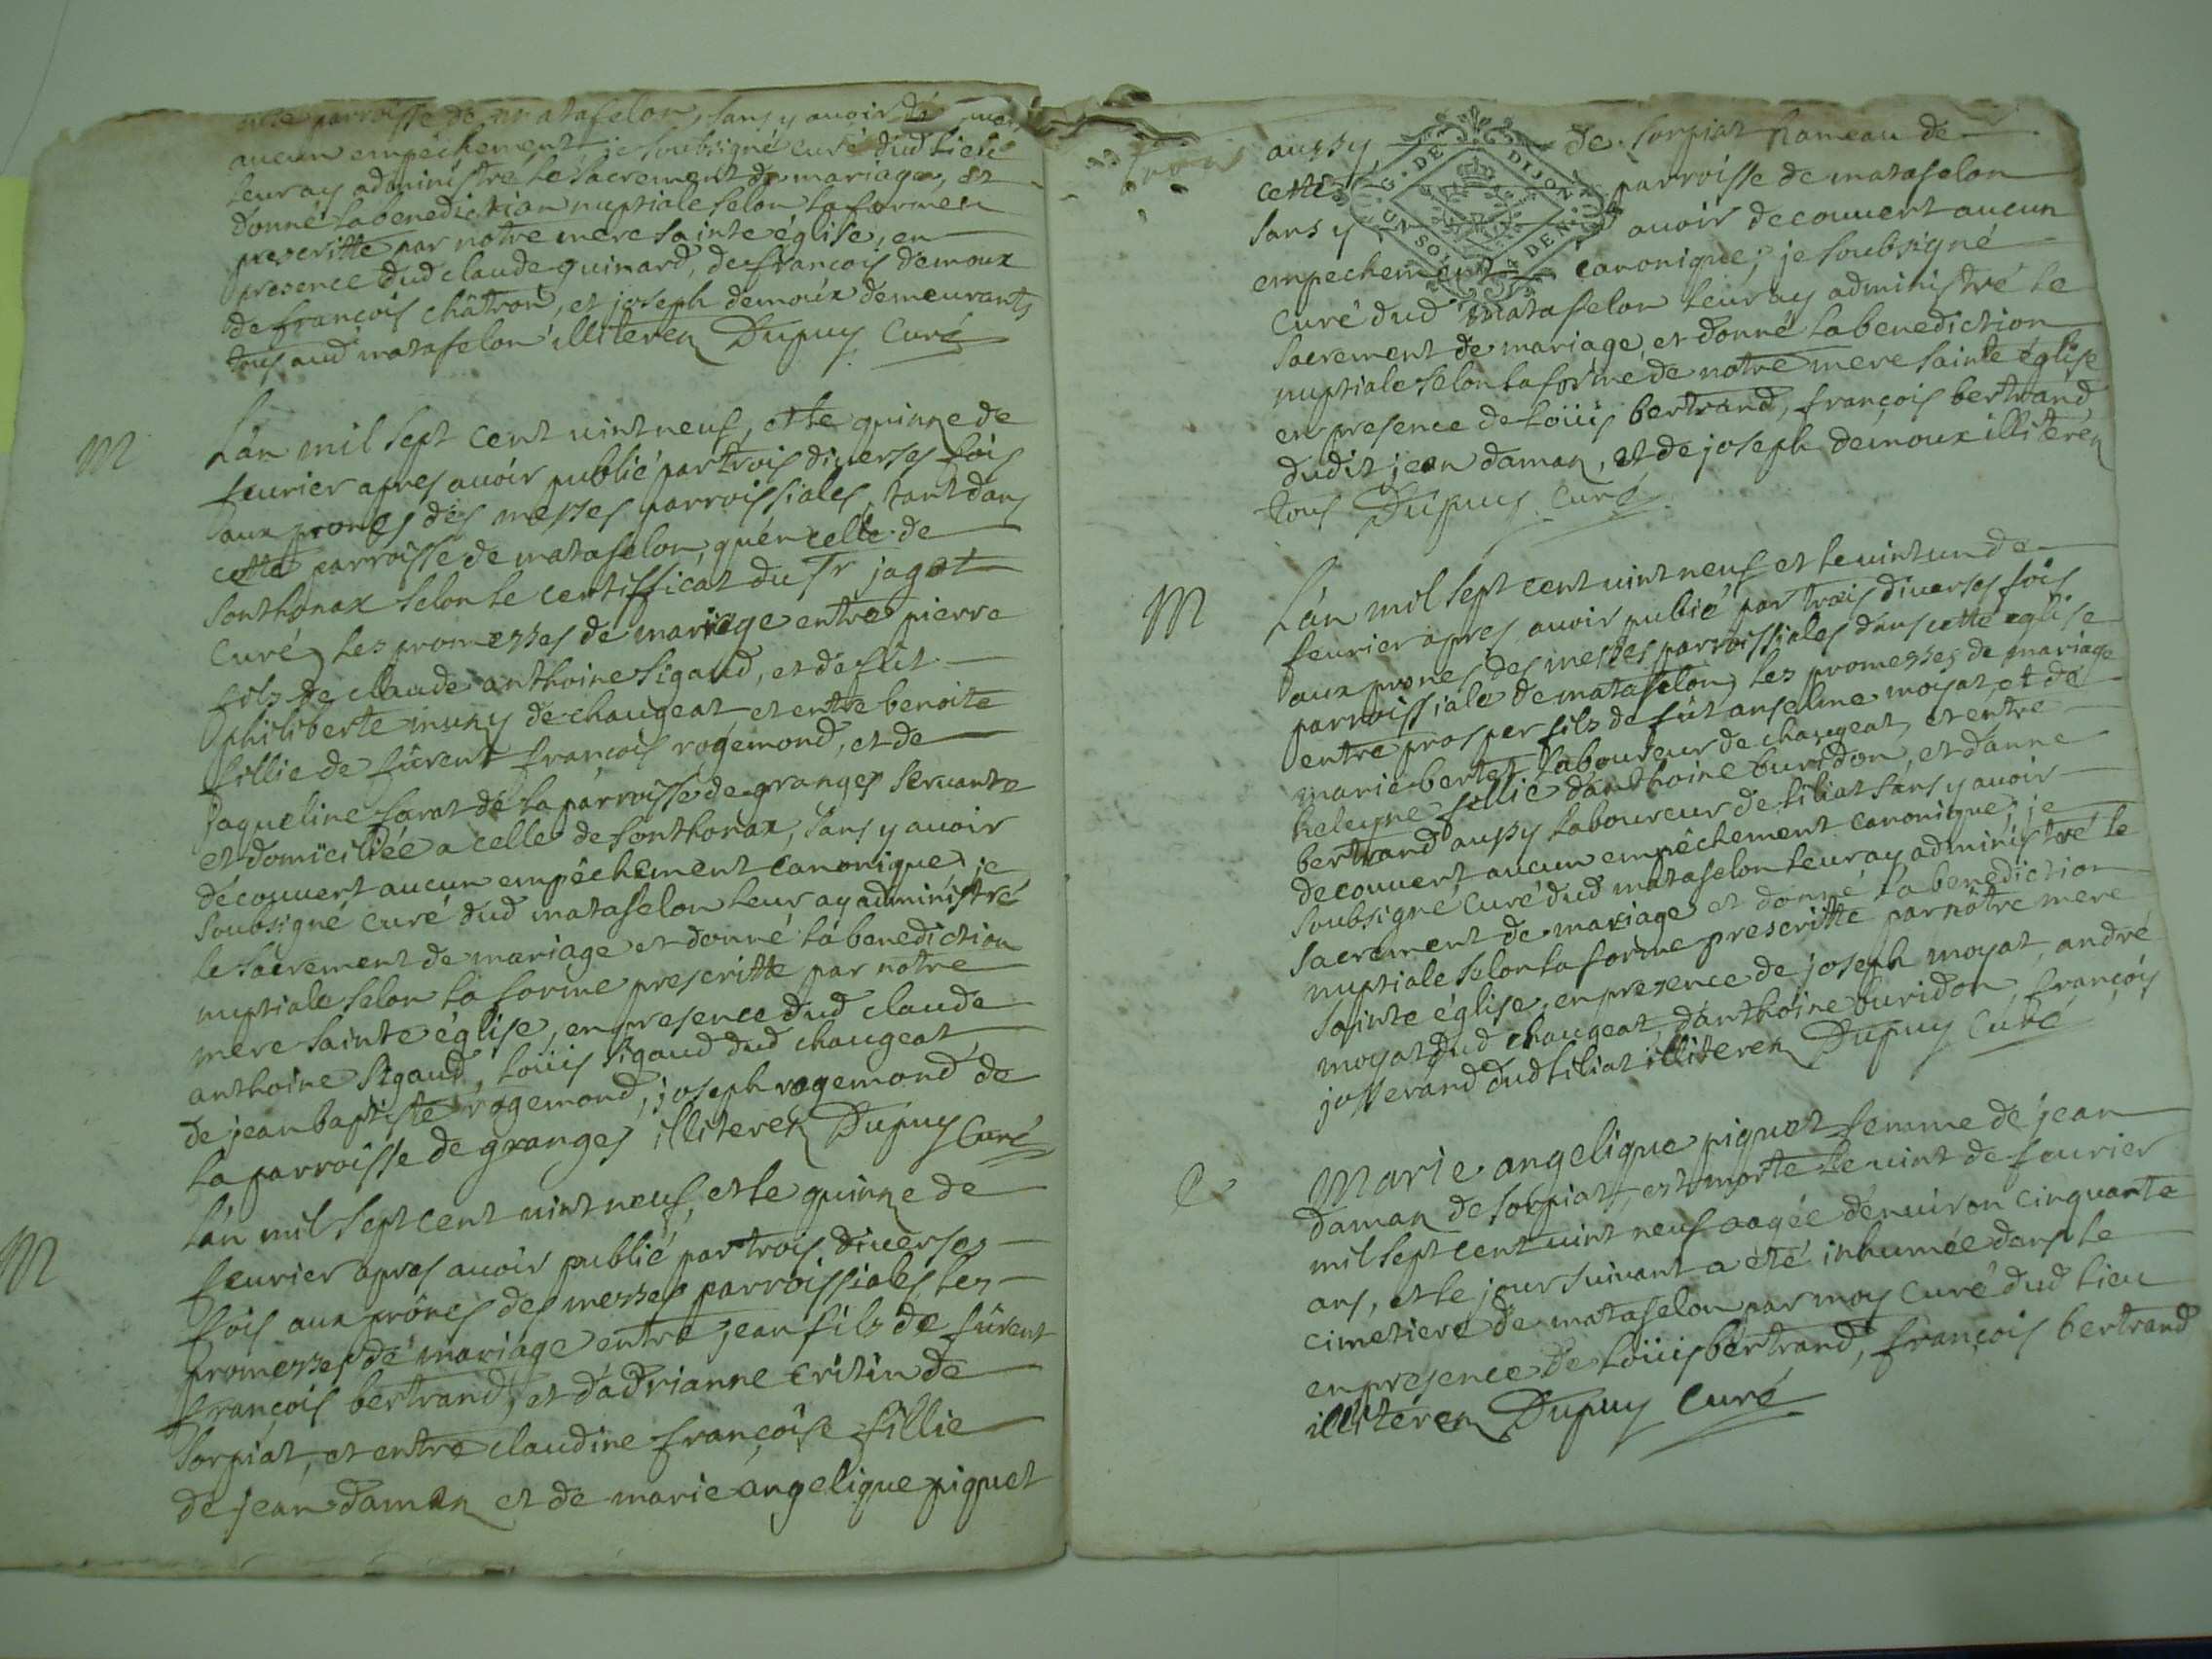 parroisse de matafelon, sans y avoir
aucun empêchement je soubsigné curé dud lieu
leur ay administré le sacrement de mariage, et
donné la benediction nuptiale selon la forme
prescritte par notre mere sainte église, en
presence dud claude guinard, de françois demoux
de françois châtron, et joseph demoux demeurants
tous aud matafelon illiterez Dupuy Curé
M
L'an mil sept cent vint neuf, et le quinze de
fevrier apres avoir publié par trois diverses fois
aux prones des messes parroissiales, tant dans
cette parroisse de matafelon, qu'en celle de
sonthonax selon le certifficat du Sr jagot
Curé, les promesses de mariage entre pierre
fils de claude anthoine sigaud, et de fût
philiberte muny de chaugeat et entre benoite
fillie de fûrent francois rogemond, et de
jaqueline farat de la parroisse de granges servante
et domiciliée a celle de sonthonax, sans y avoir
découvert aucun empêchement canonique, je
soubsigné curé dud matafelon leur ay administré
le sacrement de mariage et donné la benediction
nuptiale selon la forme prescritte par notre
mere sainte église, en presence dud claude
anthoine sigaud, loüis sigaud dud chaugeat
de jean baptiste rogemond, joseph rogemond de
la parroisse de granges illiterez Dupuy Curé
M
L'an mil sept cent vint neuf, et le quinze de
fevrier apres avoir publié par trois diverses
fois aux prônes des messes parroissiales, les
promesses de mariage entre jean fils de fûrent
françois bertrand, et d'adrianne critin de
sorpiat, et entre claudine françoise fillie
de jean daman et de marie angelique piguet
aussy de sorpiat hameau de
cette parroisse de matafelon
sans y avoir decouvert aucun
empechement canonique; je soubsigné
Curé dud matafelon leur ay administré le
sacrement de mariage et donné la benediction
nuptiale selon la forme de notre mere sainte église
en presence de loüis bertrand, françois bertrand
dudit jean daman, et de joseph demoux illiterez
tous Dupuy Curé
G. DE DIJON
M
L'an mil sept cent vint neuf et le vint un de
fevrier apres avoir publié par trois diverses fois
aux prones des messes parroissiales dans cette eglise
parroissiale de matafelon, les promesses de mariage
entre prosper fils de fût anselme moyat et de
marie bertet laboureur de chaugeat, et entre
heleyne fillie d'anthoine buridon, et d'anne
bertrand aussy laboureur de siliat sans y avoir
decouvert aucun empêchement canonique; je
soubsigné curé dud matafelon leur ay administré le
sacrement de mariage et donné la benediction
nuptiale selon la forme prescritte par notre mere
sainte église, en presence de joseph moyat, andré
moyat dud chaugeat, d'anthoine buridon, françois
josserand dud siliat illiterez Dupuy Curé
Marie angelique piguet femme de jean
daman de sorpiat, est morte le vint de fevrier
mil sept cent vint neuf aagée d'environ cinquante
ans, et le jour suivant a été inhumée dans le
cimetiere de matafelon par moy curé dud lieu
en presence de loüis bertrand, françois bertrand
illiterez Dupuy Curé